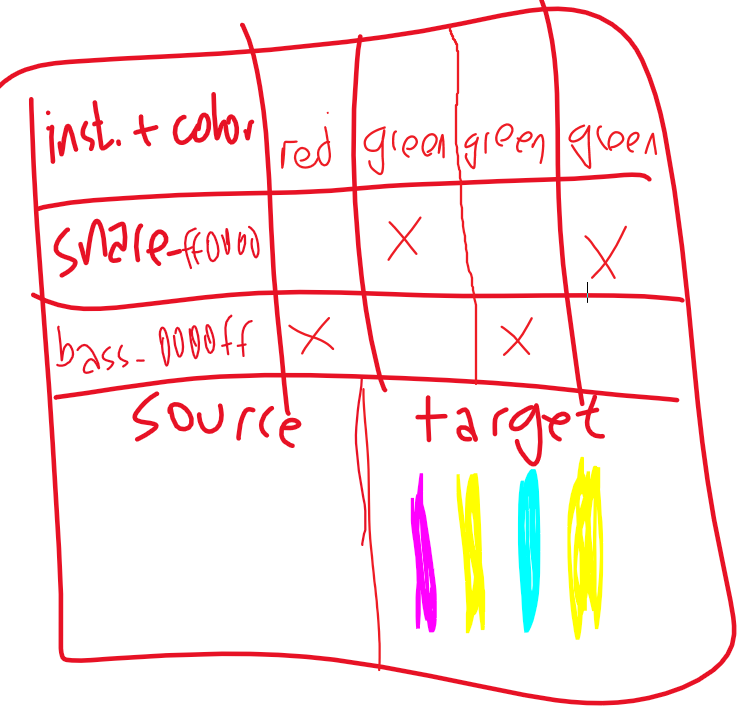 inst. + color red green green green
snare_ff0000 X X
bass_0000ff X X
source target